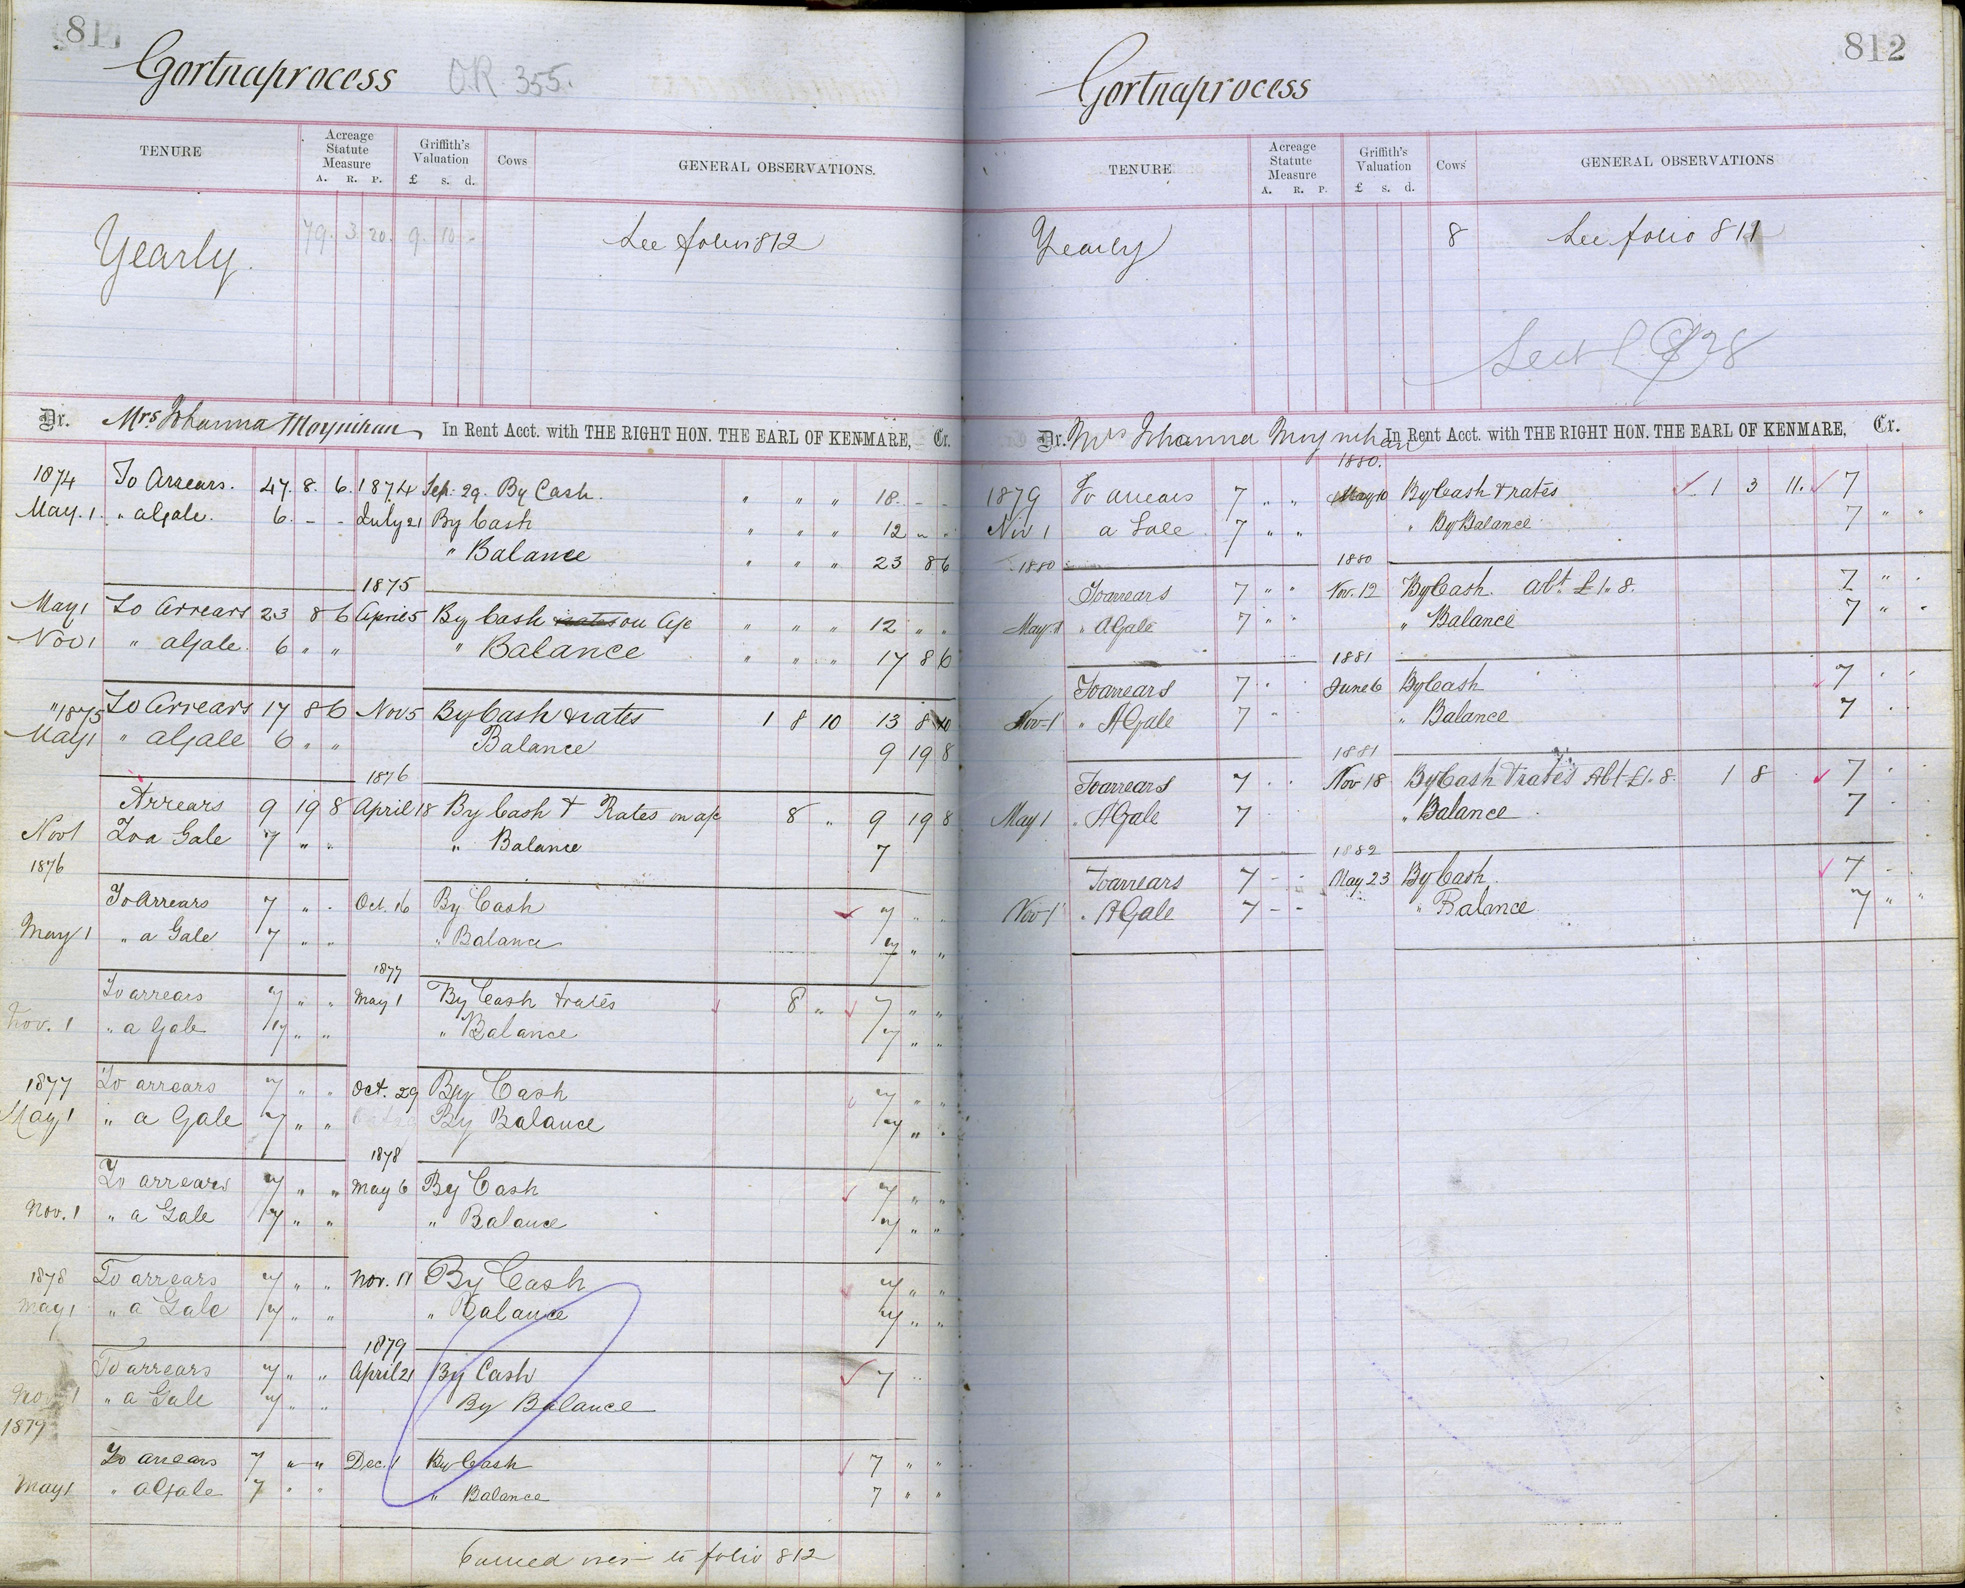 811
Gortnaprocess O.R. 355.
TENURE
Acreage Statute Measure
A. R. P.
Griffith's Valuation
£ s. d.
Cows
GENERAL OBSERVATIONS.
Yearly. 79. 3. 20. 9. 10 - See folio 812
Dr. Mrs Johanna Moynihan In Rent Acct. with THE RIGHT HON. THE EARL OF KENMARE, Cr.
1874 To Arrears. 47. 8. 6. 1874 Sep. 29. By Cash. " " " 18 - -
May. 1. " a Gale. 6. - - July 21 By Cash " " " 12 " "
" Balance " " " 23 8 6
1875
May 1 To Arrears 23 8 6 April 5 By Cash on a/c " " " 12 " "
Nov 1 " a Gale 6 " " " Balance " " " 17 8 6
" 1875 To Arrears 17 8 6 Nov 5 By Cash & rates 1 8 10 13 8 10
May 1 " a Gale 6 " " Balance 9 19 8
1876
Arrears 9 19 8 April 18 By Cash & Rates on a/c 8 " 9 19 8
Nov 1 To a Gale 7 " " " Balance 7
1876
To Arrears 7 " - Oct. 16 By Cash 7 " "
May 1 " a Gale 7 " " " Balance 7 " "
1877
To arrears 7 " " May 1 By Cash & rates 8 " 7 " "
Nov. 1 " a Gale 7 " " " Balance 7 " "
1877 To arrears 7 " " Oct. 29 By Cash 7 " "
May 1 " a Gale 7 " " By Balance 7 " "
1878
To arrears 7 " " May 6 By Cash 7 " "
Nov. 1 " a Gale 7 " " " Balance 7 " "
1878 To arrears 7 " " Nov. 11 By Cash 7 " "
May 1 " a Gale 7 " " " Balance 7 " "
1879
To arrears 7 " " April 21 By Cash 7 " "
Nov 1 " a Gale 7 " " By Balance
1879
To arrears 7 " " Dec. 1 By Cash 7 " "
May 1 " a Gale 7 " " " Balance 7 " "
Carried over to folio 812
812
Gortnaprocess
TENURE
Acreage Statute Measure
A. R. P.
Griffith's Valuation
£ s. d.
Cows
GENERAL OBSERVATIONS
Yearly 8 See folio 811
Dr. Mrs Johanna Moynihan In Rent Acct. with THE RIGHT HON. THE EARL OF KENMARE, Cr.
1880.
1879 To arrears 7 " " May 10 By Cash & rates 1 3 11. 7
Nov 1 a Gale 7 " " " By Balance 7 " "
1880 1880
To arrears 7 " " Nov. 12 By Cash. Abt. £1. 8. 7 " "
May 1 " A Gale 7 " " " Balance 7 " "
1881
To arrears 7 " " June 6 By Cash 7 " "
Nov 1 " A Gale 7 " " Balance 7 " "
1881
To arrears 7 " " Nov 18 By Cash & rates Abt £1. 8. 1 8 7 " "
May 1 " A Gale 7 " Balance 7 "
1882
To arrears 7 - - May 23 By Cash. 7 - -
Nov 1 " A Gale 7 - - " Balance 7 " "